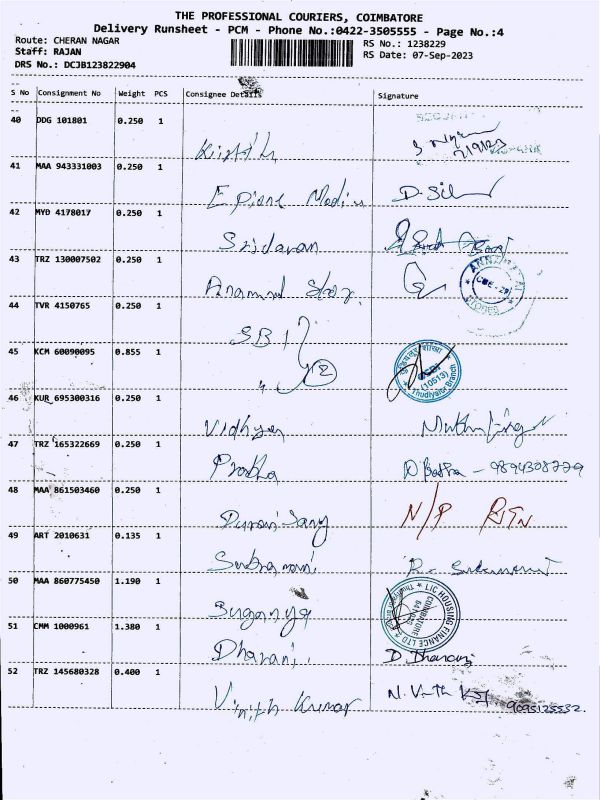 THE PROFESSIONAL COURIERS, COIMBATORE
Delivery Runsheet - PCM - Phone No.:0422-3505555 - Page No.:4
Route: CHERAN NAGAR
RS No.: 1238229
Staff: RAJAN
RS Date: 07-Sep-2023
DRS No.: DCJB123822904
S No Consignment No Weight PCS Consignee Details Signature
40 DDG 101801 0.250 1
7/9/23
41 MAA 943331003 0.250 1
D. Sil
42 MYD 4178017 0.250 1
Sridaran
43 TRZ 130007502 0.250 1
44 TVR 4150765 0.250 1
SBI
45 KCM 60090095 0.855 1
(2)
SBI
(10513)
Thudiyalur Branch
46 KUR 695300316 0.250 1
Vidhya
47 TRZ 165322669 0.250 1
Prabha
9894308779
48 MAA 861503460 0.250 1
N/P RTN
49 ART 2010631 0.135 1
Subramani
50 MAA 860775450 1.190 1
Suganya
LIC HOUSING FINANCE LTD
COIMBATORE
51 CMM 1000961 1.380 1
Dharani
52 TRZ 145680328 0.400 1
Vinith Kumar
9095125532